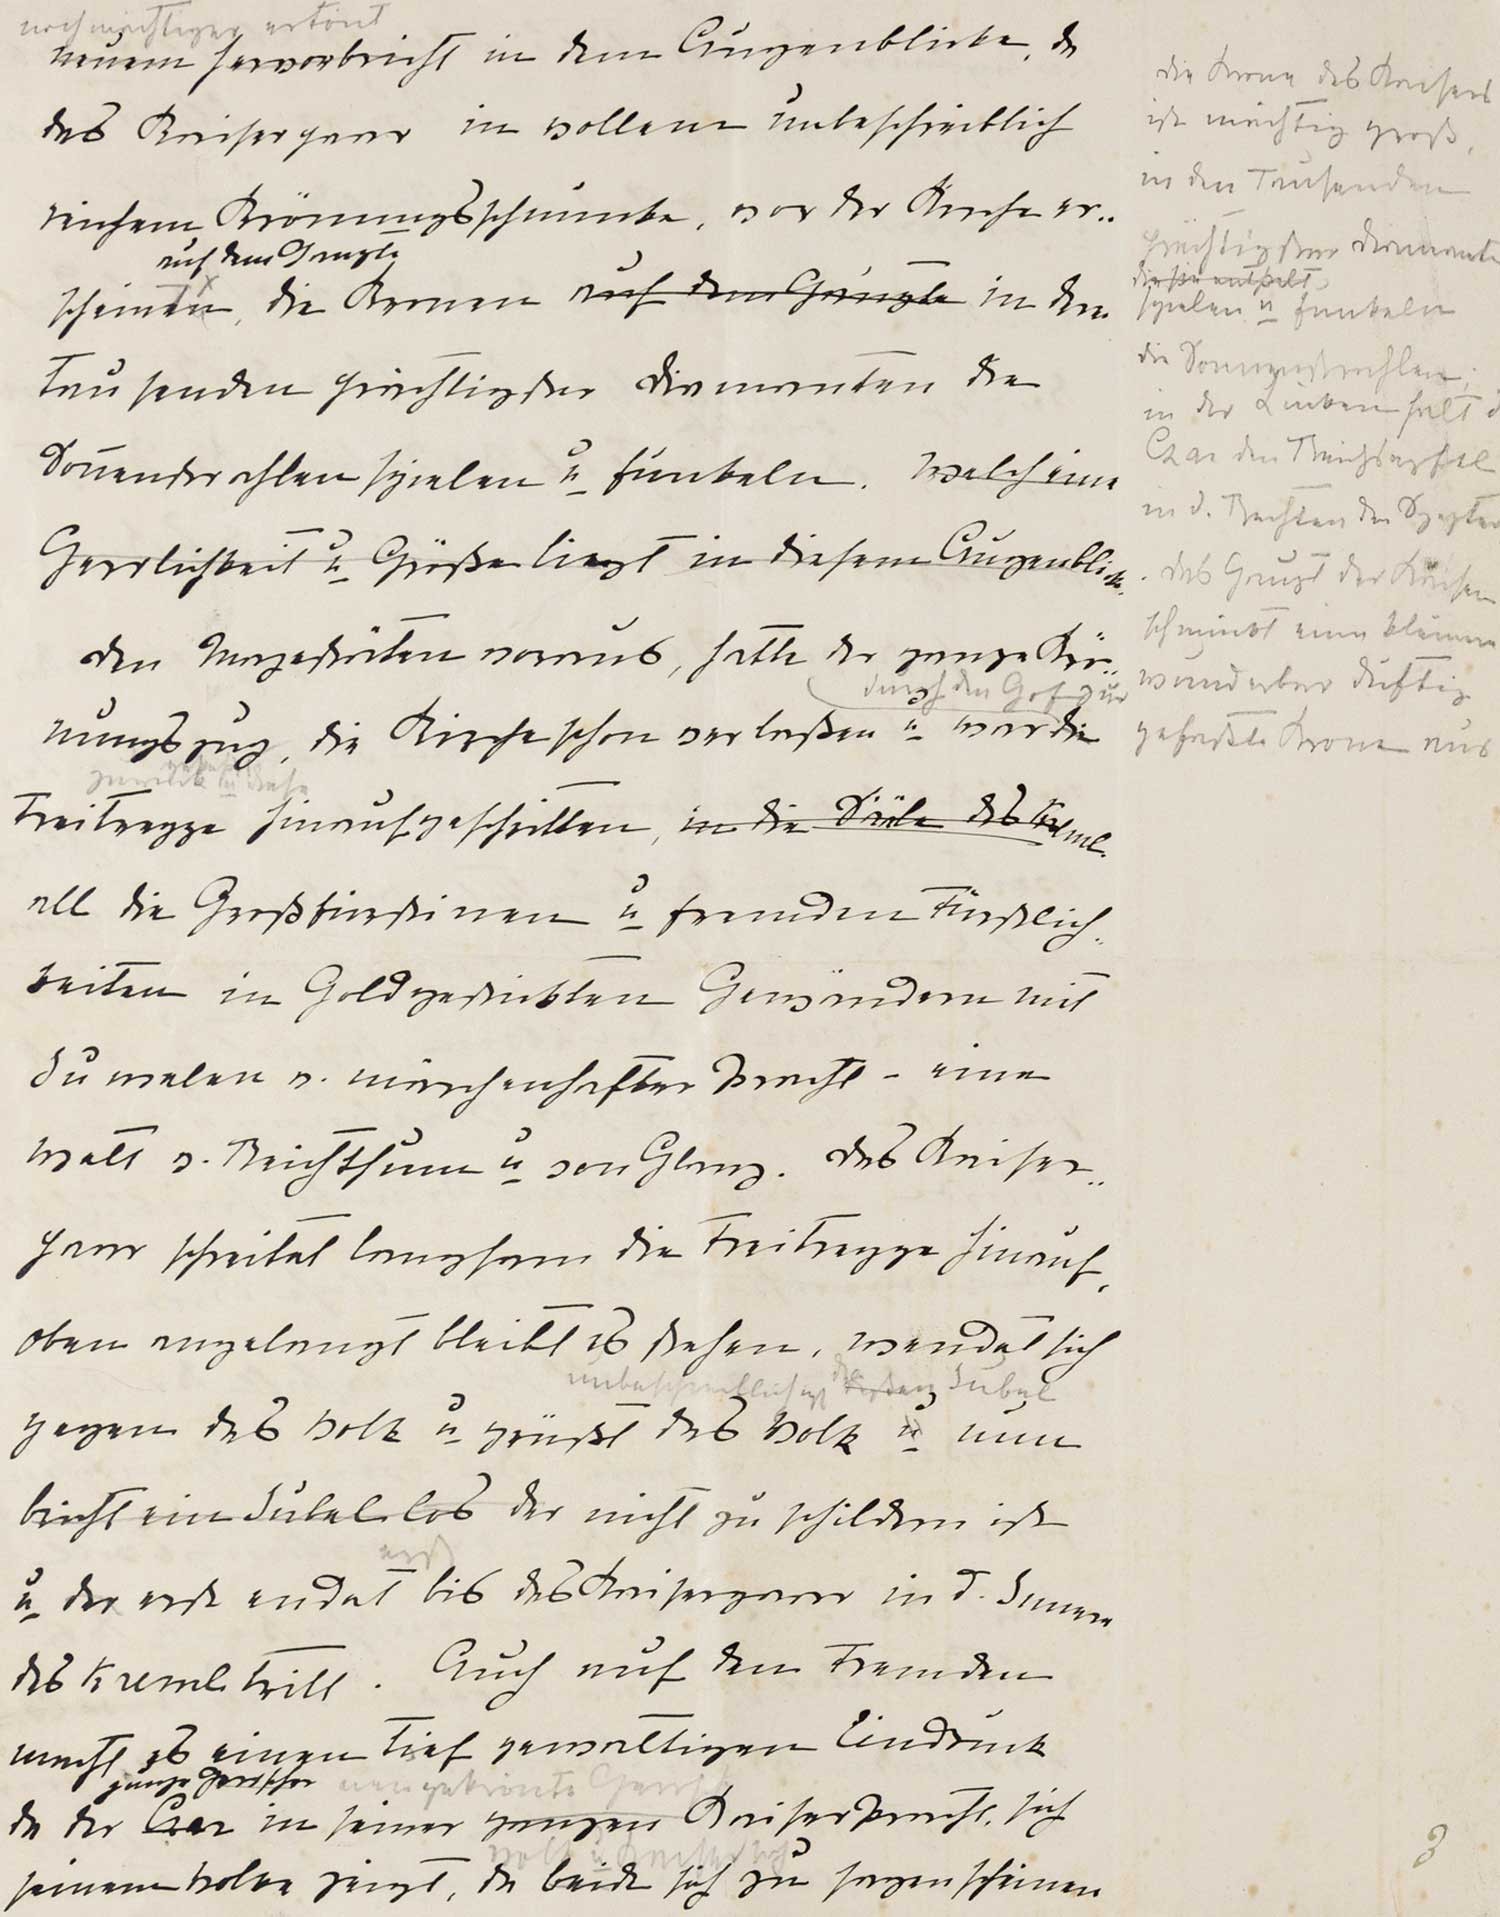 noch mächtiger ertönt
neuem hervorbricht in dem Augenblicke, da
das Kaiserpaar in vollem unbeschreiblich
reichem Krönungsschmucke, vor der Kirche er-
auf dem Haupte
scheinen, die Kronen auf dem Haupte in den
Tausenden prächtigster Diamanten die
Sonnenstrahlen spielen u funkeln. Welch eine
Herrlichkeit u Größe liegt in diesem Augenblick.
Den Majestäten voraus, hatte der ganze Krö-
durch den Hof zur
nungszug, die Kirche schon verlaßen u war die
zurück u diese
Freitreppe hinaufgeschritten, in die Säle des Kreml.
all die Großfürstinen u fremden Fürstlich-
keiten in Goldgestickten Gewändern mit
Juwelen v. märchenhafter Pracht - eine
Welt v. Reichthum u von Glanz. Das Kaiser-
paar schreitet langsam die Freitreppe hinauf,
oben angelangt bleibt es stehen, wendet sich
unbeschreiblichster Jubel
gegen das Volk u grüßt das Volk u nun
bricht ein Jubel los der nicht zu schildern ist
erst
u der erst endet bis das Kaiserpaar in d. Innere
des Kreml tritt. Auch auf den Fremden
macht es einen tief gewaltigen Eindruck
junge Herrscher neugekrönte Herrscher
da der Czar in seiner ganzen Kaiserpracht, sich
Volk u Kaiser sich
seinem Volke zeigt, da beide sich zu sagen scheinen
die Krone des Kaisers
ist mächtig groß,
in den Tausenden
prächtigster Diamanten
die sie enthält
spielen u funkeln
die Sonnenstrahlen;
in der Linken hält d
Czar den Reichsapfel
in d. Rechten den Szepter
. das Haupt der Kaiserin
schmückt eine kleinere
wunderbar duftig
gefaßte Krone aus
3